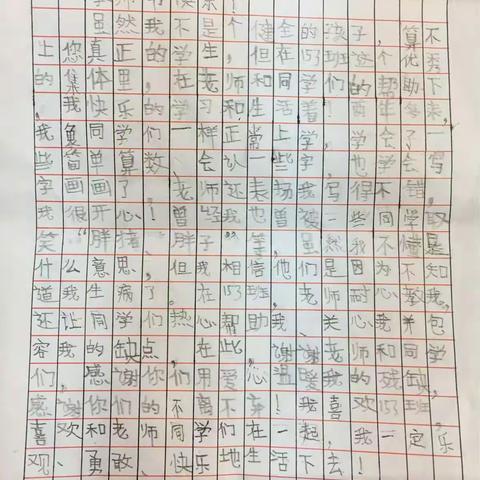 虽然我不是个健全的孩子，算不
上您真正的学生，但在153班这个优秀
的集体里，在老师和同学们的帮助下
我快乐的学习和生活着！两年多来，
我象同学们一样正常上学，学会了一
些简单算数、会认一些字，也学会写
字画画了，老师还表扬我写得不错，
我很开心！曾经我也曾被一些同学取
笑“胖猪、胖子”等，虽然我不懂是
什么意思，但我相信他们是因为不知
道我生病了。在153班，老师耐心教我，
还让同学们热心帮助我、关心我并包
容我的缺点，在此，谢谢老师和同学
们，感谢你们用爱心温暖我的残缺，
感谢你们的不离不弃！我喜欢153班，
喜欢和老师同学们在一起，我一定乐
观、勇敢、快乐地生活下去！